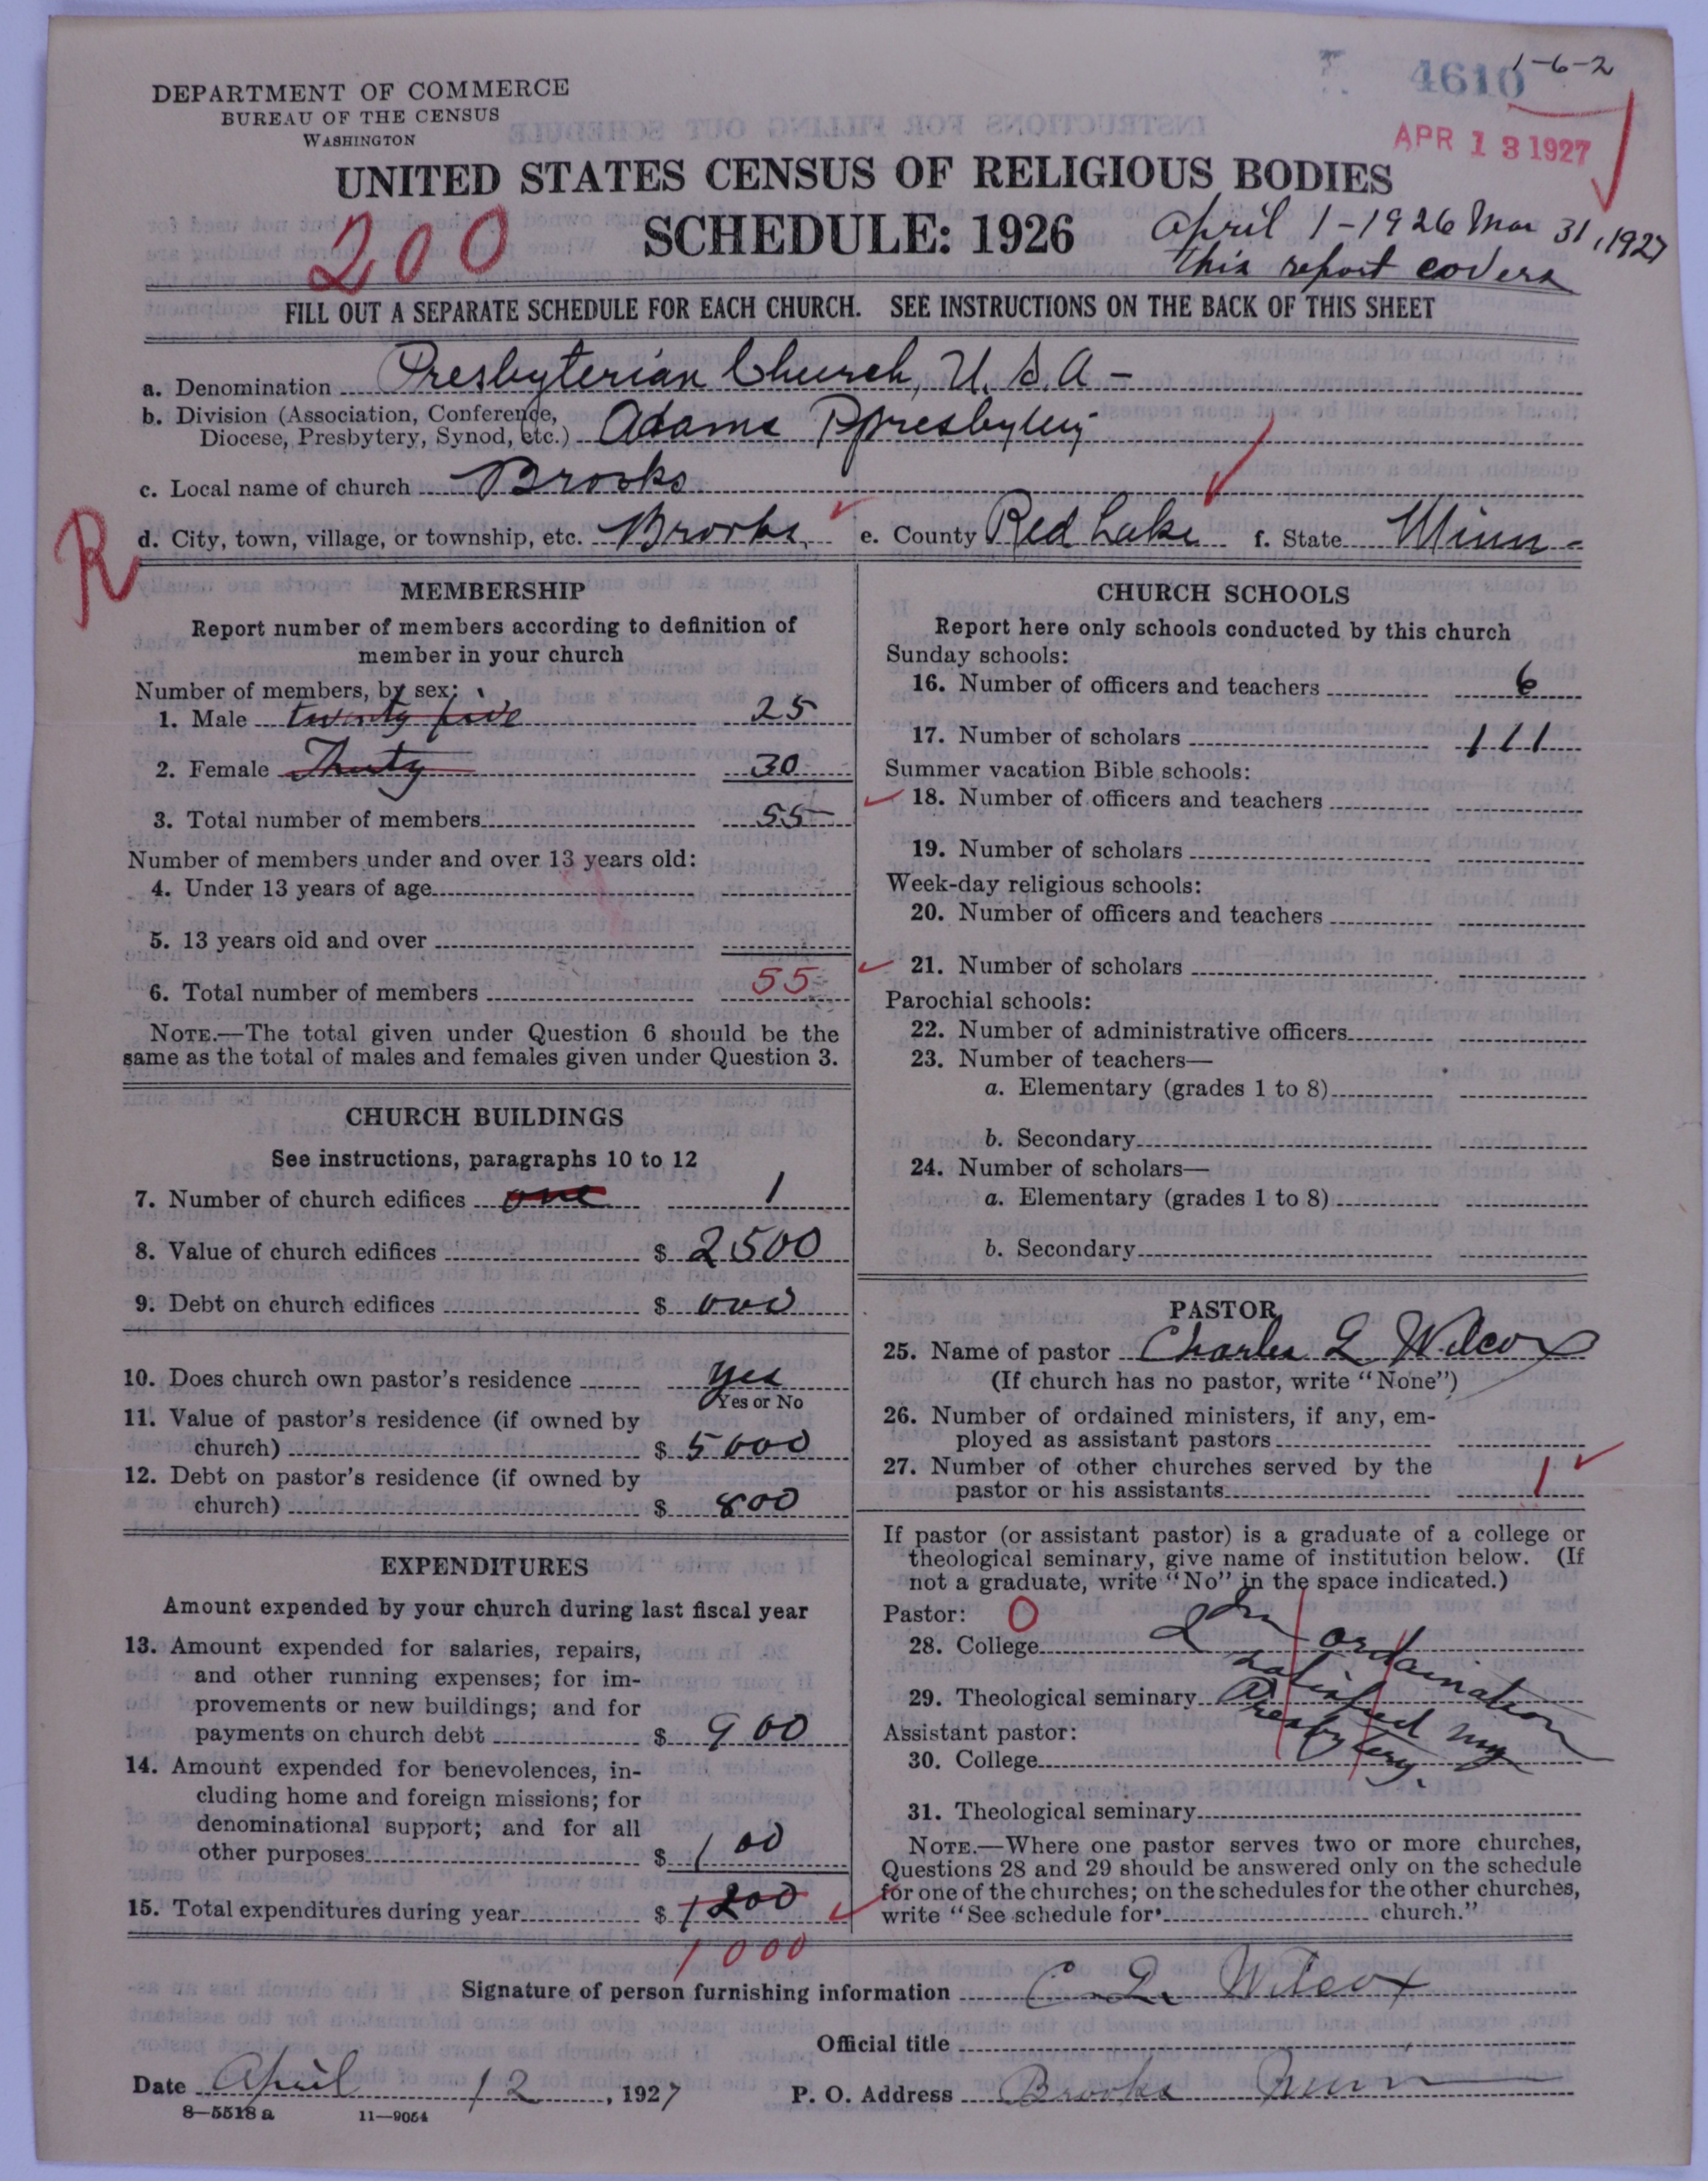 1-6-2
4610
DEPARTMENT OF COMMERCE
BUREAU OF THE CENSUS
WASHINGTON
APR 13 1927
UNITED STATES CENSUS OF RELIGIOUS BODIES
200
SCHEDULE: 1926
April 1-1926 Mar 31, 1927
this report covers
FILL OUT A SEPARATE SCHEDULE FOR EACH CHURCH. SEE INSTRUCTIONS ON THE BACK OF THIS SHEET
a. Denomination Presbyterian Church, U.S.A-
b. Division (Association, Conference,
Diocese, Presbytery, Synod, etc.) Adams Presbytery
c. Local name of church Brooks
R
d. City, town, village, or township, etc. Brooks e. County Red Lake f. State Minn-
MEMBERSHIP
Report number of members according to definition of
member in your church
Number of members, by sex:
1. Male twenty five 25
2. Female Thirty 30
3. Total number of members 55
Number of members under and over 13 years old:
4. Under 13 years of age
5. 13 years old and over
6. Total number of members 55
NOTE.—The total given under Question 6 should be the
same as the total of males and females given under Question 3.
CHURCH BUILDINGS
See instructions, paragraphs 10 to 12
7. Number of church edifices one 1
8. Value of church edifices $ 2500
9. Debt on church edifices $ 000
10. Does church own pastor's residence Yes
Yes or No
11. Value of pastor's residence (if owned by
church) $ 5000
12. Debt on pastor's residence (if owned by
church) $ 800
EXPENDITURES
Amount expended by your church during last fiscal year
13. Amount expended for salaries, repairs,
and other running expenses; for im-
provements or new buildings; and for
payments on church debt $ 900
14. Amount expended for benevolences, in-
cluding home and foreign missions; for
denominational support; and for all
other purposes $ 100
15. Total expenditures during year $ 1200
1000
CHURCH SCHOOLS
Report here only schools conducted by this church
Sunday schools:
16. Number of officers and teachers 6
17. Number of scholars 111
Summer vacation Bible schools:
18. Number of officers and teachers
19. Number of scholars
Week-day religious schools:
20. Number of officers and teachers
21. Number of scholars
Parochial schools:
22. Number of administrative officers
23. Number of teachers—
a. Elementary (grades 1 to 8)
b. Secondary
24. Number of scholars—
a. Elementary (grades 1 to 8)
b. Secondary
PASTOR
25. Name of pastor Charles Q Wilcox
(If church has no pastor, write "None")
26. Number of ordained ministers, if any, em-
ployed as assistant pastors
27. Number of other churches served by the
pastor or his assistants 1
If pastor (or assistant pastor) is a graduate of a college or
theological seminary, give name of institution below. (If
not a graduate, write "No" in the space indicated.)
Pastor: O
28. College My ordination
satisfied my
29. Theological seminary Presbytery.
Assistant pastor:
30. College
31. Theological seminary
NOTE.—Where one pastor serves two or more churches,
Questions 28 and 29 should be answered only on the schedule
for one of the churches; on the schedules for the other churches,
write "See schedule for church."
Signature of person furnishing information C Q. Wilcox
Official title
Date April 12, 1927 P. O. Address Brooks Minn
8—5518 a 11—9054